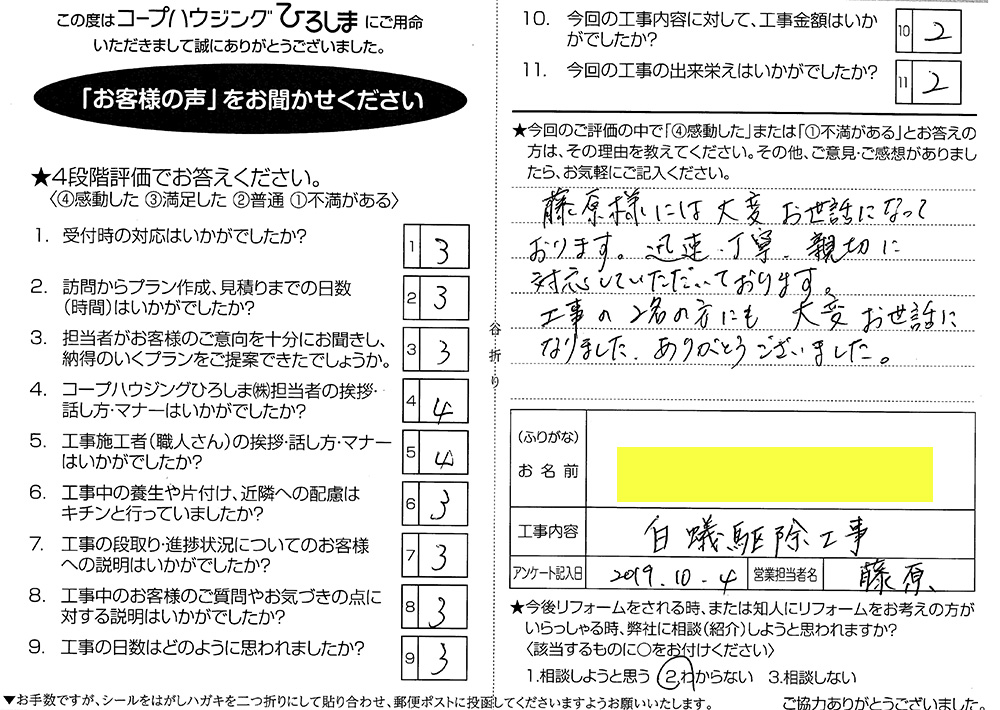 この度はコープハウジングひろしまにご用命
いただきまして誠にありがとうございました。
「お客様の声」をお聞かせください
★4段階評価でお答えください。
〈④感動した ③満足した ②普通 ①不満がある〉
1. 受付時の対応はいかがでしたか?
1 3
2. 訪問からプラン作成、見積りまでの日数
(時間)はいかがでしたか?
2 3
3. 担当者がお客様のご意向を十分にお聞きし、
納得のいくプランをご提案できたでしょうか。
3 3
4. コープハウジングひろしま㈱担当者の挨拶・
話し方・マナーはいかがでしたか?
4 4
5. 工事施工者(職人さん)の挨拶・話し方・マナー
はいかがでしたか?
5 4
6. 工事中の養生や片付け、近隣への配慮は
キチンと行っていましたか?
6 3
7. 工事の段取り・進捗状況についてのお客様
への説明はいかがでしたか?
7 3
8. 工事中のお客様のご質問やお気づきの点に
対する説明はいかがでしたか?
8 3
9. 工事の日数はどのように思われましたか?
9 3
▼お手数ですが、シールをはがしハガキを二つ折りにして貼り合わせ、郵便ポストに投函してくださいますようお願いいたします。
谷折り
10. 今回の工事内容に対して、工事金額はいか
がでしたか?
10 2
11. 今回の工事の出来栄えはいかがでしたか?
11 2
★今回のご評価の中で「④感動した」または「①不満がある」とお答えの
方は、その理由を教えてください。その他、ご意見・ご感想がありまし
たら、お気軽にご記入ください。
藤原様には大変お世話になって
おります。迅速・丁寧・親切に
対応していただいております。
工事の2名の方にも 大変お世話に
なりました。ありがとうございました。
(ふりがな)
お名前
工事内容 白蟻駆除工事
アンケート記入日 2019.10.4 営業担当者名 藤原
★今後リフォームをされる時、または知人にリフォームをお考えの方が
いらっしゃる時、弊社に相談(紹介)しようと思われますか?
〈該当するものに○をお付けください〉
1.相談しようと思う 2.わからない 3.相談しない
ご協力ありがとうございました。